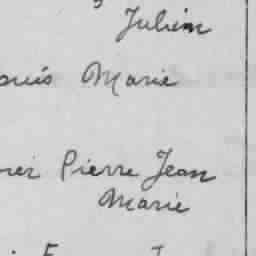 Julien
ouis Marie
rier Pierre Jean
Marie